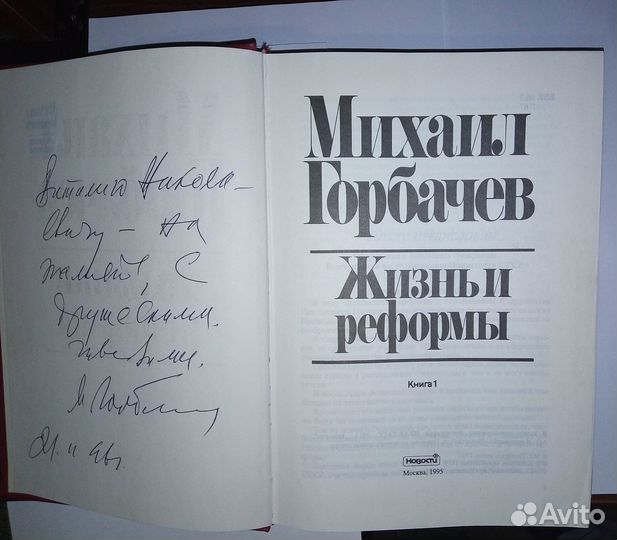 Виталию Никола-
евичу – на
память, с
дружескими
чувствами.
М Горбачев
Михаил
Горбачев
Жизнь и
реформы
Книга 1
Новости
Москва, 1995
Avito